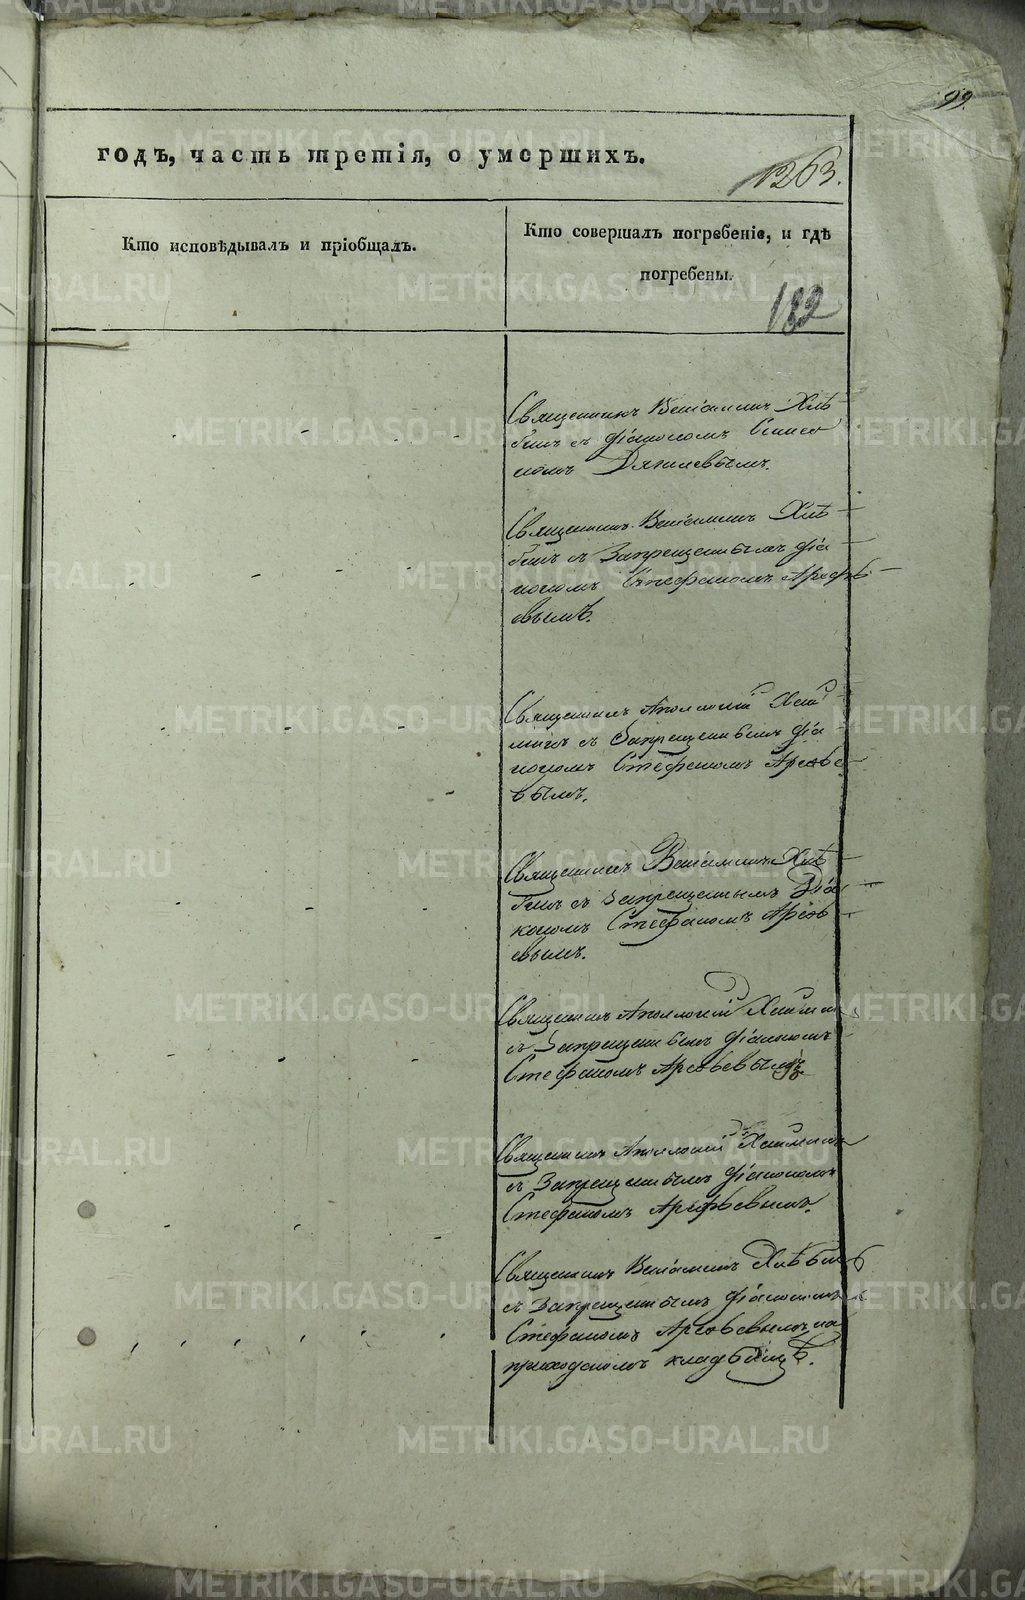 99.
годъ, часть третія, о умершихъ.
1263.
Кто исповѣдывалъ и пріобщалъ.
Кто совершалъ погребеніе, и гдѣ
погребены.
182
Священникъ Веніаминъ Хлѣ
бинъ съ діакономъ Симео
номъ
Священникъ Веніаминъ Хлѣ
бинъ съ Запрещеннымъ діа
кономъ Стефаномъ Арефь
евымъ.
Священникъ Аполлоній
съ Запрещеннымъ діа
кономъ Стефаномъ Арефье
вымъ.
Священникъ Веніаминъ Хлѣ
бинъ съ Запрещеннымъ Діа
кономъ Стефаномъ Арефь
евымъ.
Священникъ Аполлоній
съ Запрещеннымъ діакономъ
Стефаномъ Арефьевымъ
Священникъ Аполлоній
съ Запрещеннымъ діакономъ
Стефаномъ Арефьевымъ.
Священникъ Веніаминъ Хлѣбинъ
съ Запрещеннымъ діакономъ
Стефаномъ Арефьевымъ, на
приходскомъ кладбищѣ.
METRIKI.GASO-URAL.RU